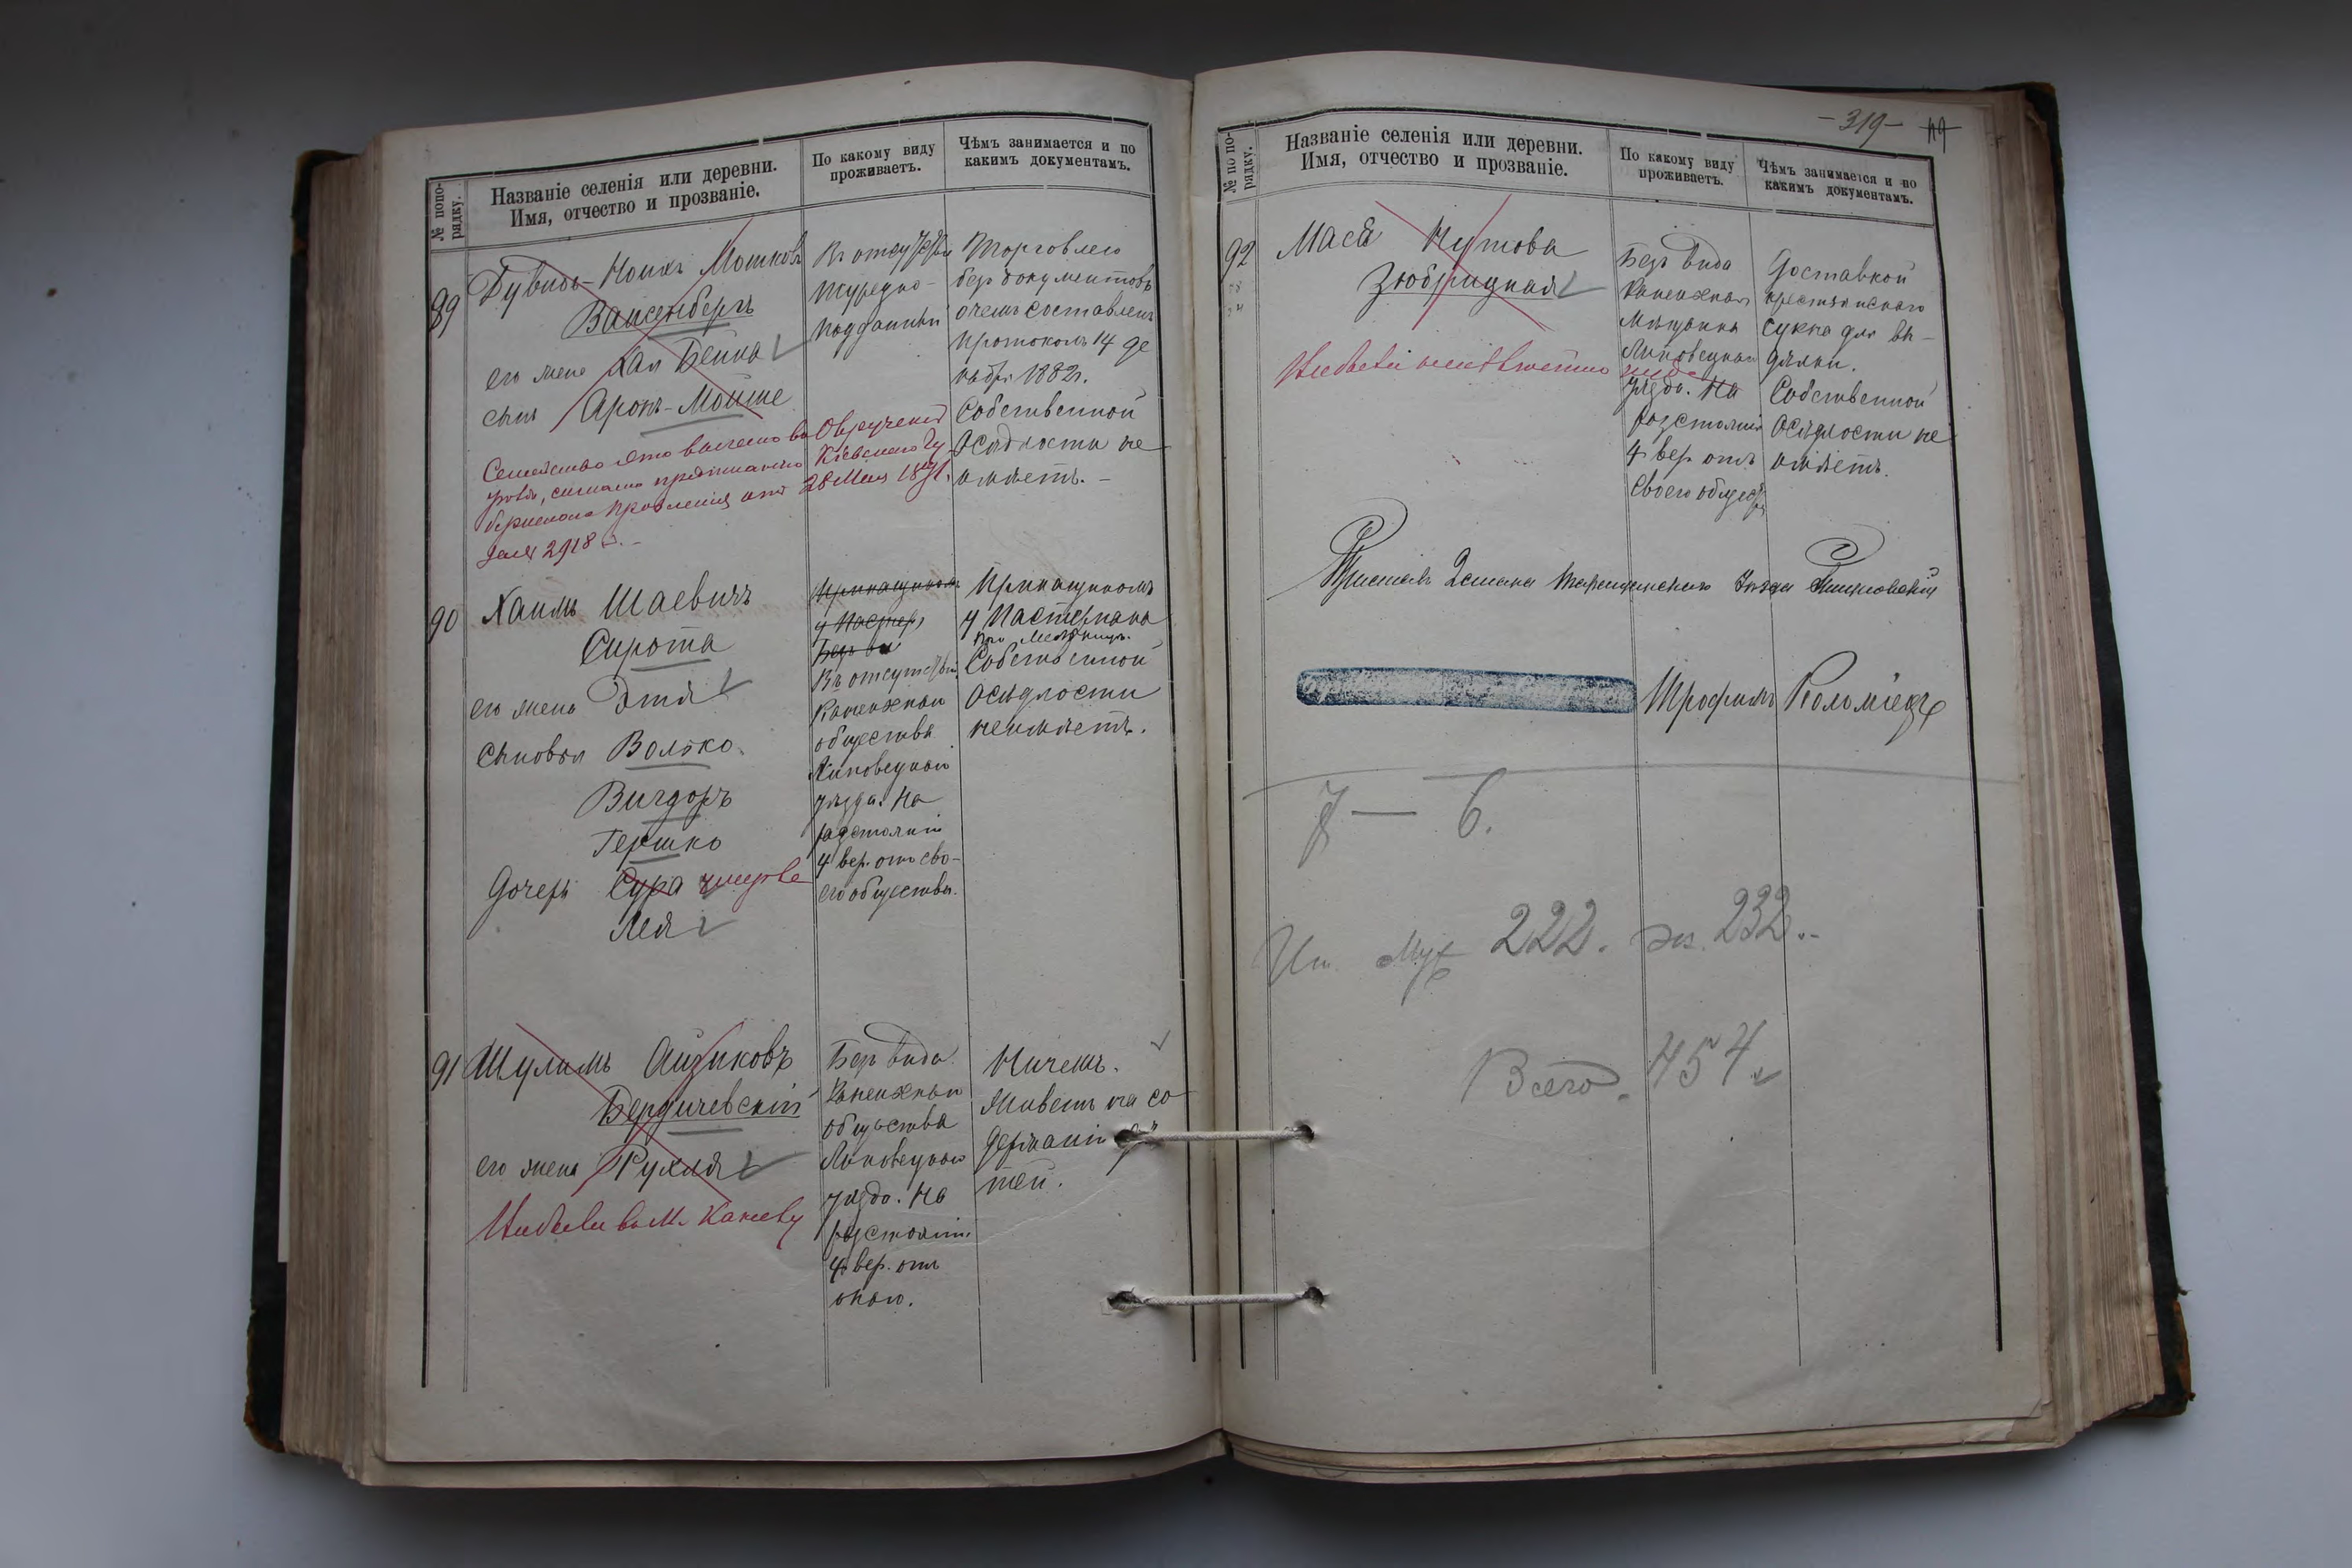 № по по-
рядку.
Названіе селенія или деревни.
Имя, отчество и прозваніе.
По какому виду
проживаетъ.
Чѣмъ занимается и по
какимъ документамъ.
89
Дувидъ-Ноихъ Мошковъ
Вайсенбергъ
его жена Хая Бейна
сынъ Аронъ-Мойше
Семейство это выслано въ Овручскій
согласно предписанію Кіевскаго Гу
бернскаго Правленія отъ 28 Мая 1891.
за № 2918
Въ отсутствіи
турецко-
подданный
Торговлею
безъ документовъ
о чемъ составленъ
протоколъ 14 де
кабря 1882 г.
Собственной
осѣдлости не
имѣетъ. -
90
Хаимъ Шаевичъ
Сирота
его жена Этя
Сыновья Волько.
Вигдоръ
Гершко
Дочери Сура умерла
Лея
Прикащикомъ
у Пастер
Безъ ви
Въ отсутствіи
Каменнаго
общества
Липовецкаго
уѣзда. На
разстояніи
4 вер. отъ сво-
его общества.
Прикащикомъ
у Пастернака
при мельницѣ.
Собственной
осѣдлости
неимѣетъ.
91
Шулимъ Айзиковъ
Бердичевскій
его жена Рухля
Выбыли въ М. Каневъ
Безъ вида
общества
Липовецкаго
уѣзда. На
разстояніи
4 вер. отъ
онаго.
Ничемъ.
Живетъ на со
держаніи дѣ
тей.
-319- 119
№ по по-
рядку.
Названіе селенія или деревни.
Имя, отчество и прозваніе.
По какому виду
проживаетъ.
Чѣмъ занимается и по
какимъ документамъ.
92
Мася Нутова
Зюбрицкая
неизвѣстно куда
Безъ вида
мѣщанка
Липовецкаго
уѣзда. На
разстояніи
4 вер. отъ
своего общества
Доставкой
крестьянскаго
сукна для вы-
дѣлки.
Собственной
осѣдлости не
имѣетъ.
Приставъ 2 стана Таращанскаго Уѣзда
Трофимъ Коломіецъ
7 — 6.
Ит. Муж 222. жен. 232.
Всего. 454